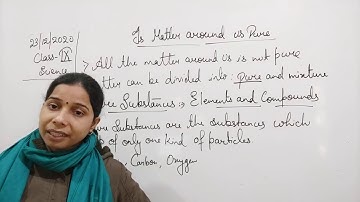 23/12/2020
Class-IX
Science
Is Matter around us Pure
> All the matter around us is not pure
tter can be divided into: Pure and mixture
re Substances → Elements and Compounds
ure Substances are the substances which
p of only one kind of particles.
Carbon, Oxygen